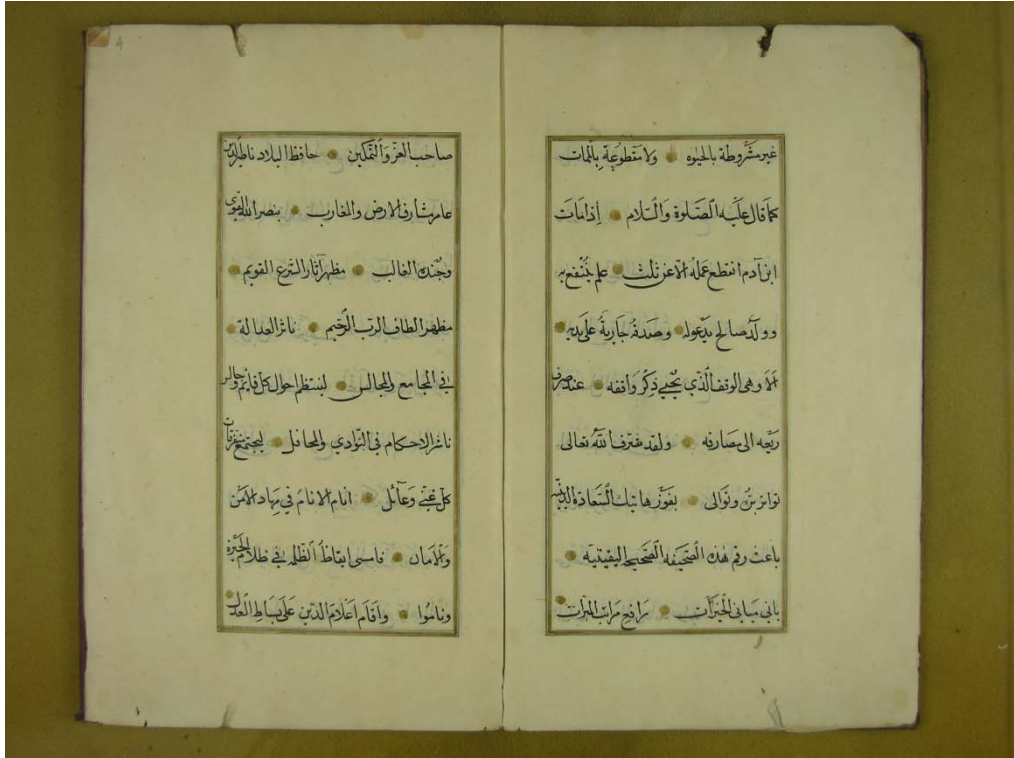 غير مشروطة بالحيوه ولا مقطوعة بالممات
كما قال عليه الصلوة والسلام إذا مات
ابن آدم انقطع عمله الا عن ثلث علم ينتفع به
وولد صالح يدعوله وصدقة جارية على يديه
ألا وهى الوقف الذي يحيي ذكر واقفه عند صرف
ريعه الى مصارفه ولقد شرف الله تعالى
تواتر بره وتوالى بفوز هاتيك السعادة
باعث رقم هذه الصحيفه الصحيحه اليقينيه
بانى مبانى الخيرات رافع مراتب المبرات
4
صاحب العز والتمكين حافظ البلاد
عامر مشارق الارض والمغارب بنصر الله القوى
وجنده الغالب مظهر آثار الشرع القويم
مظهر الطاف الرب الرحيم ناشر العدالة
في المجامع والمجالس لينتظم احوال كل قايم وجالس
ناشر الاحكام فى النوادي والمحافل ليجتمع
كل غني وعائل انام الانام في مهاد الامن
والامان فامسى ايقاظ الظلمه في ظلام الحيرة
وناموا واقام اعلام الدين على بساط العدل